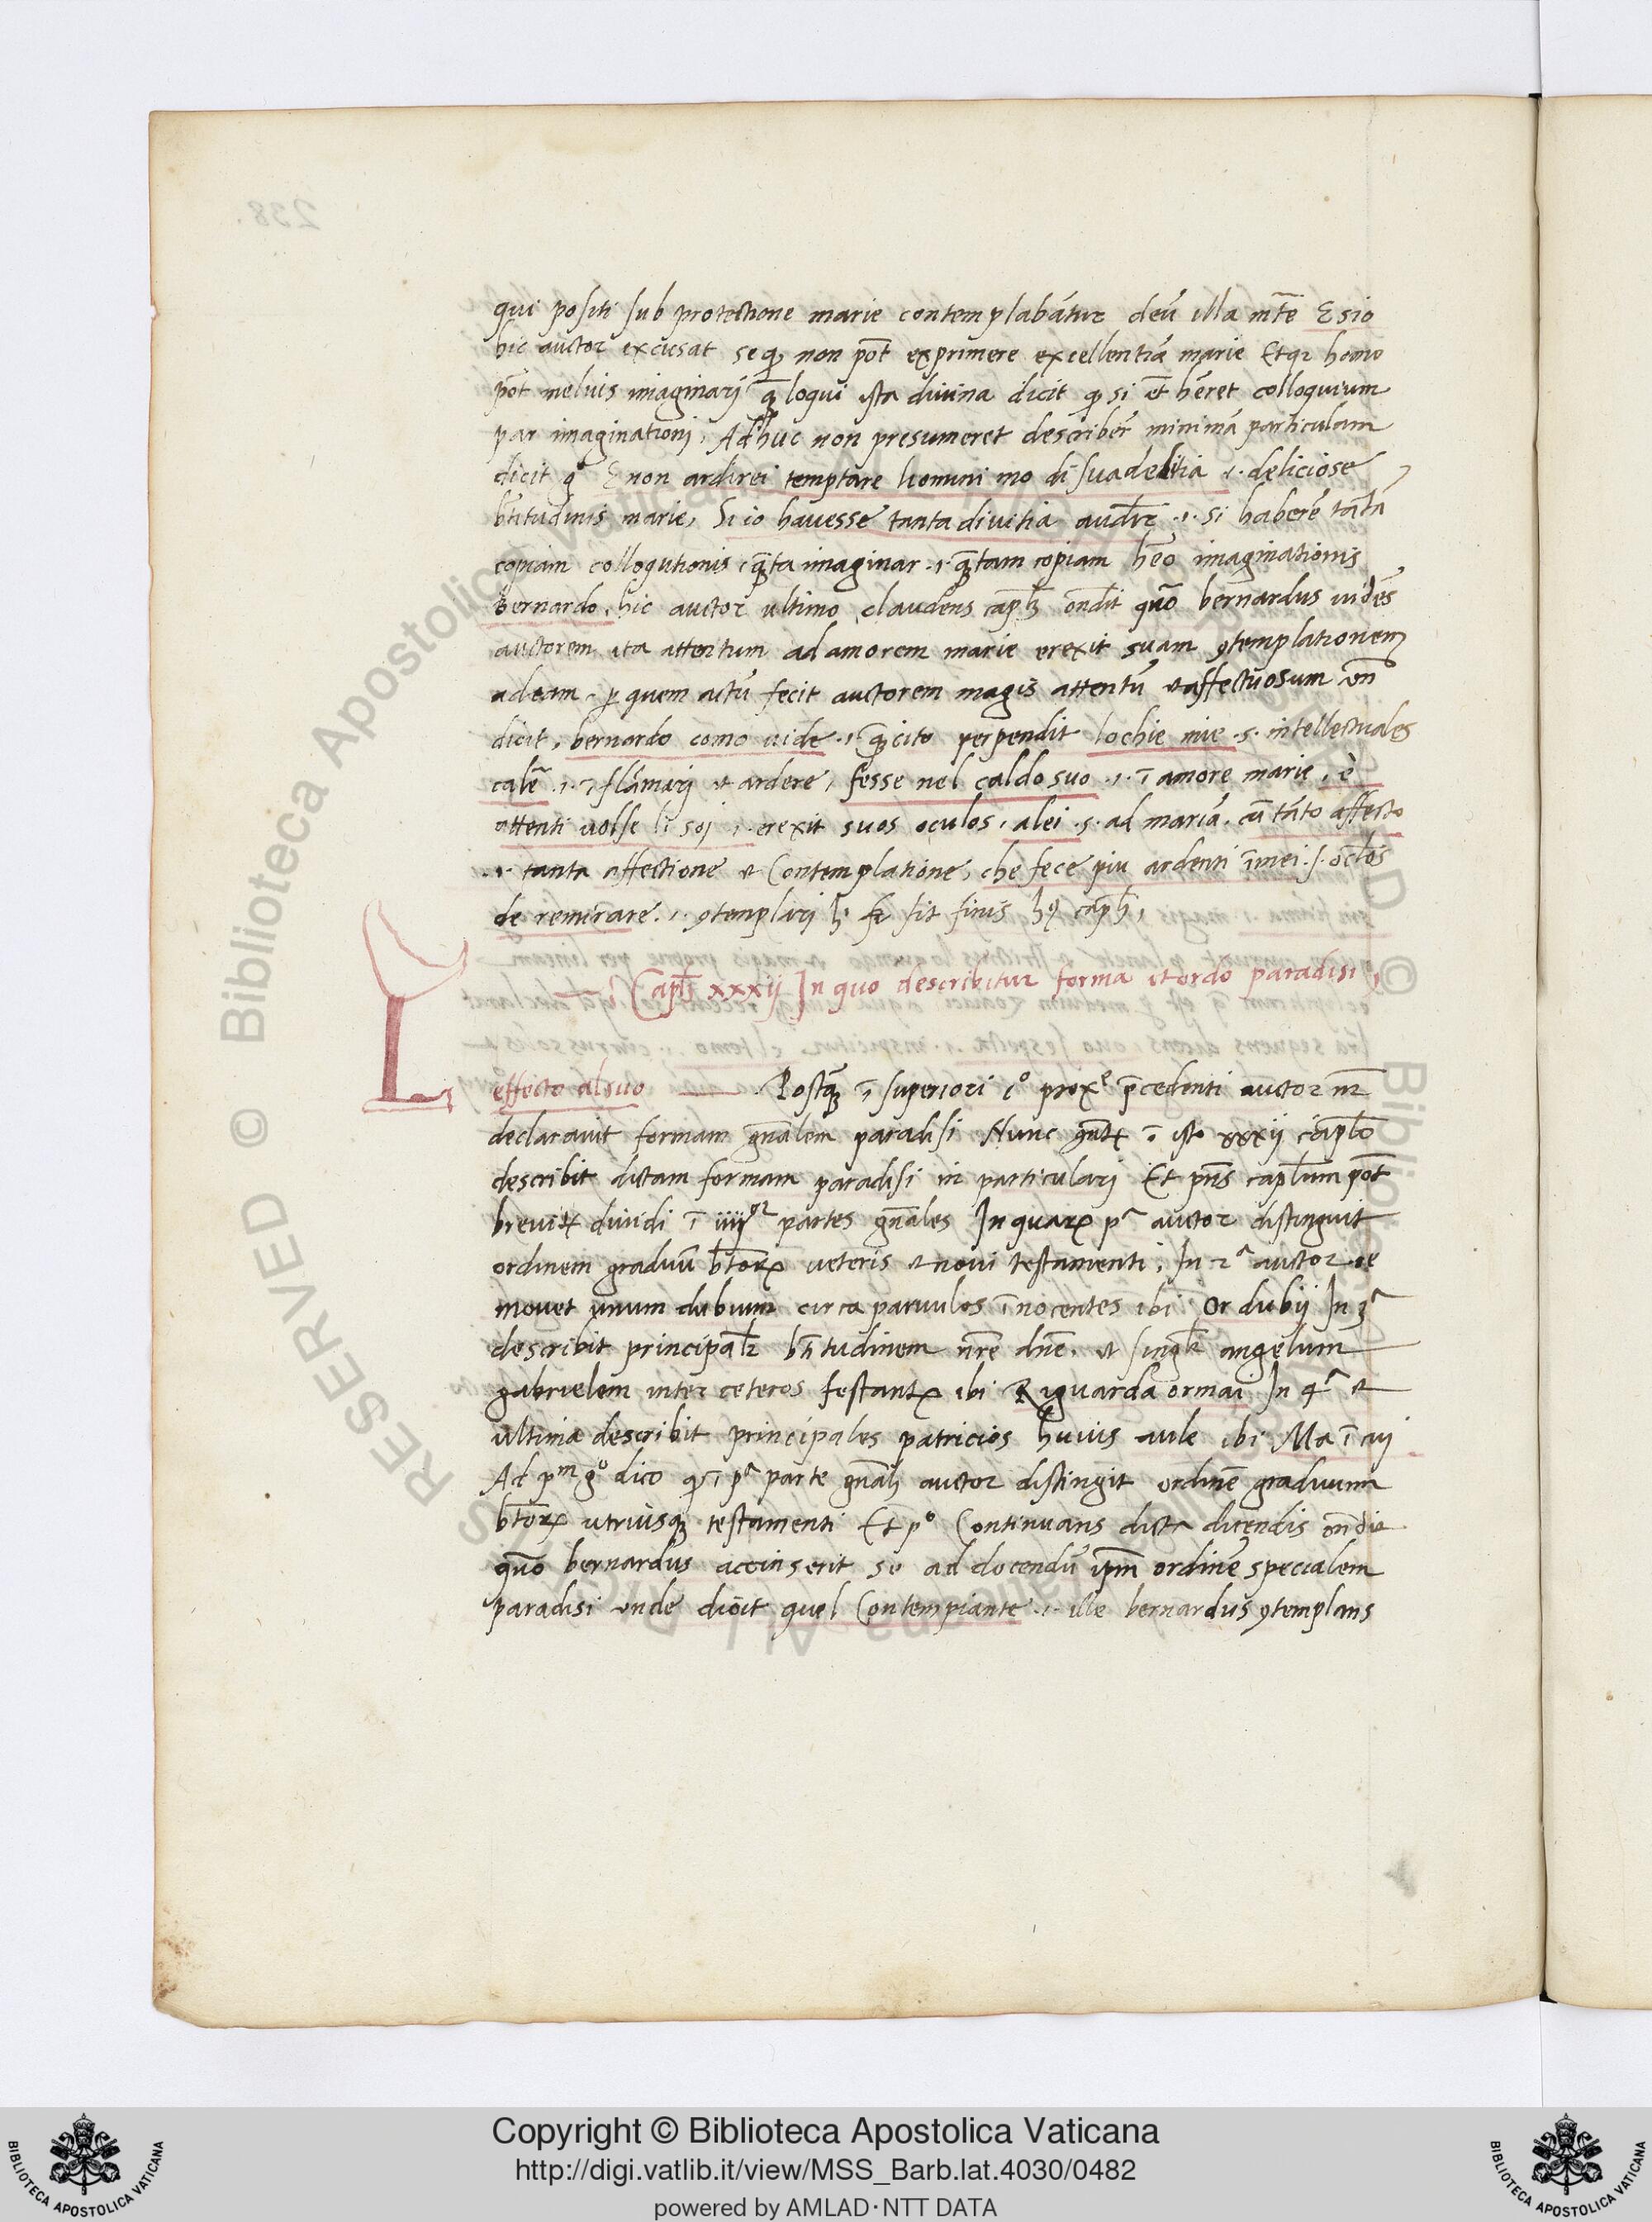 238.
qui positi sub protectione marie contemplabātur deū illa mēte E sio
hic auctor excusat se q, non pōt exprimere excellentiā marie Etqr homo
pōt melius imaginarj q̄ loqui ista diuina dicit q, si et hēret colloquium
par imaginationj, Adhuc non presumeret describer̄ minimā particulam
dicit gº E non ardirei temptare lomini mo di suadelitia .i. deliciose
btitudinis marie, Si io hauesse tanta divitia .i. si haberē tātā
copiam colloqutionis, q̄ta imaginar .i. q̄tam copiam hēo imaginationis
Bernardo, hic auctor ultimo claudens caplꝫ ondit quō bernardus uidēs
auctorem ita attentum ad amorem marie erexit suam ꝯtemplationem
ad eam, p quem actū fecit auctorem magis attentū et affectuosum vn̄
dicit, bernardo como uide .i. q̄ cito perpendit lochie mie .s. intellectuales
calē .i. ī flāmarj et ardere, fesse nel caldo suo .i. ī amore marie, è
attenti uolse li soj .i. erexit suos oculos, alei .s. ad mariā, cū tāto affecto
.i. tanta affectione et Contemplatione, che fece piu ardenti ī mei .s. oclos
de remirare .i. ꝯtemplarj fit finis capli,
Caplꝫ xxxij In quo describitur forma et ordo paradisi,
L
effecto al suo Postq̄ ī superiori cº proxº p̄cedenti auctor nr̄
declarauit formam gn̄alem paradisi Nunc ī isto xxxij caplo
describit dictam formam paradisi in particularj Et pn̄s caplum pōt
breuiter diuidi ī iiijor partes gn̄ales In quarꝝ pª auctor distinguit
ordinem graduū btorꝝ ueteris et noui testamenti, In 2ª auctor re
mouet unum dubium circa paruulos īnocentes ibi Or dubij In 3ª
describit principalꝫ btitudinem nrē dnē, et singlꝫ angelum
gabrielem inter ceteros festantꝫ ibi Riguarda ormai In 4ª et
ultima describit principales patricios huius aule ibi Ma ī cuj
Ad pm gº dico q, ī pª parte gn̄alj auctor distingit ordinē graduum
btorꝝ utriusqꝫ testamenti Et pº Continuans dicta dicendis ondit
quō bernardus accinserit se ad docendū ipm ordinē specialem
paradisi unde dicit quel Contempiante .i. ille bernardus ꝯtemplans
© Biblioteca Apostolica Vaticana ALL RIGHTS RESERVED
Copyright © Biblioteca Apostolica Vaticana
http://digi.vatlib.it/view/MSS_Barb.lat.4030/0482
powered by AMLAD·NTT DATA
BIBLIOTECA APOSTOLICA VATICANA
BIBLIOTECA APOSTOLICA VATICANA